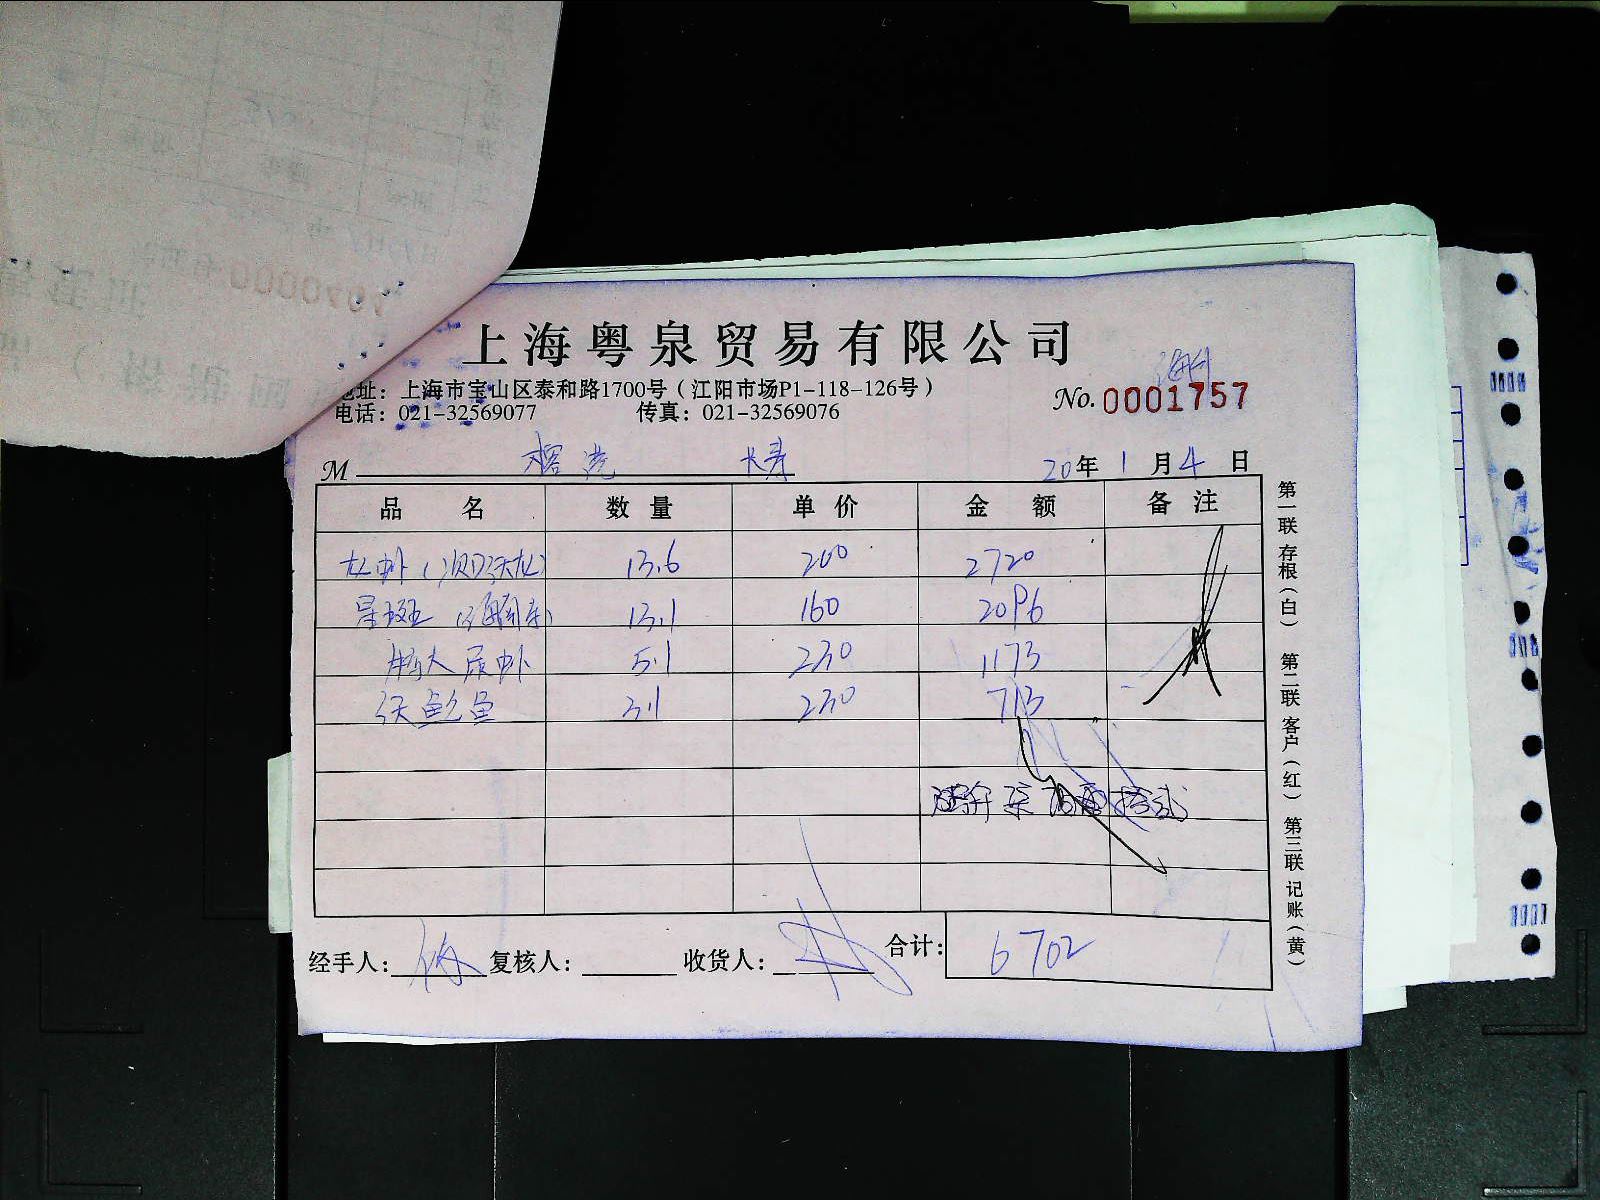 上海粤泉贸易有限公司
地址：上海市宝山区泰和路1700号（江阳市场P1-118-126号）
电话：021-32569077 传真：021-32569076
No. 0001757
M 长寿 20年 1月 4日
品 名 数 量 单 价 金 额 备 注
龙虾 13.6 200 2720
星斑 13.1 160 2096
大尿虾 5.1 230 1173
鲍鱼 3.1 230 713
陆仟柒佰零拾贰
经手人： 复核人： 收货人： 合计：6702
第一联 存根（白） 第二联 客户（红） 第三联 记账（黄）